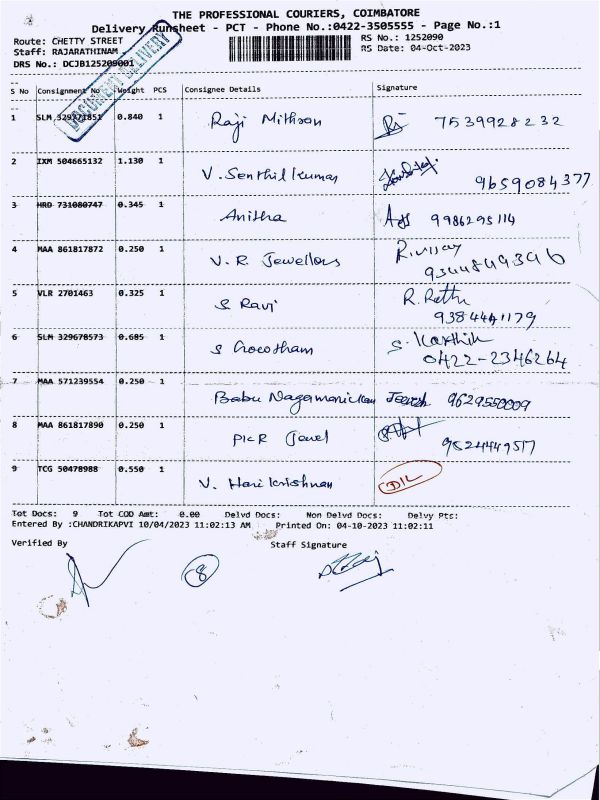 THE PROFESSIONAL COURIERS, COIMBATORE
Delivery Runsheet - PCT - Phone No.:0422-3505555 - Page No.:1
Route: CHETTY STREET RS No.: 1252090
Staff: RAJARATHINAM RS Date: 04-Oct-2023
DRS No.: DCJB125209001
DOCUMENT DELIVERY
S No Consignment No Weight PCS Consignee Details Signature
1 SLM 329771851 0.840 1 Raji Mithran 7539928232
2 IXM 504665132 1.130 1 V. Senthil Kumar 9659084377
3 HRD 731080747 0.345 1 Anitha 9986295114
4 MAA 861817872 0.250 1 V. R. Jewellors R. Vijay
9344849396
5 VLR 2701463 0.325 1 S Ravi R.
6 SLM 329678573 0.685 1 S Gowtham S. Karthik
0422-2346264
7 MAA 571239554 0.250 1 Babu Nagamanickam 9629550009
8 MAA 861817890 0.250 1 PKR Jewel
9 TCG 50478988 0.550 1 V. Hari krishnan D/L
Tot Docs: 9 Tot COD Amt: 0.00 Delvd Docs: Non Delvd Docs: Delvy Pts:
Entered By :CHANDRIKAPVI 10/04/2023 11:02:13 AM Printed On: 04-10-2023 11:02:11
Verified By Staff Signature
8